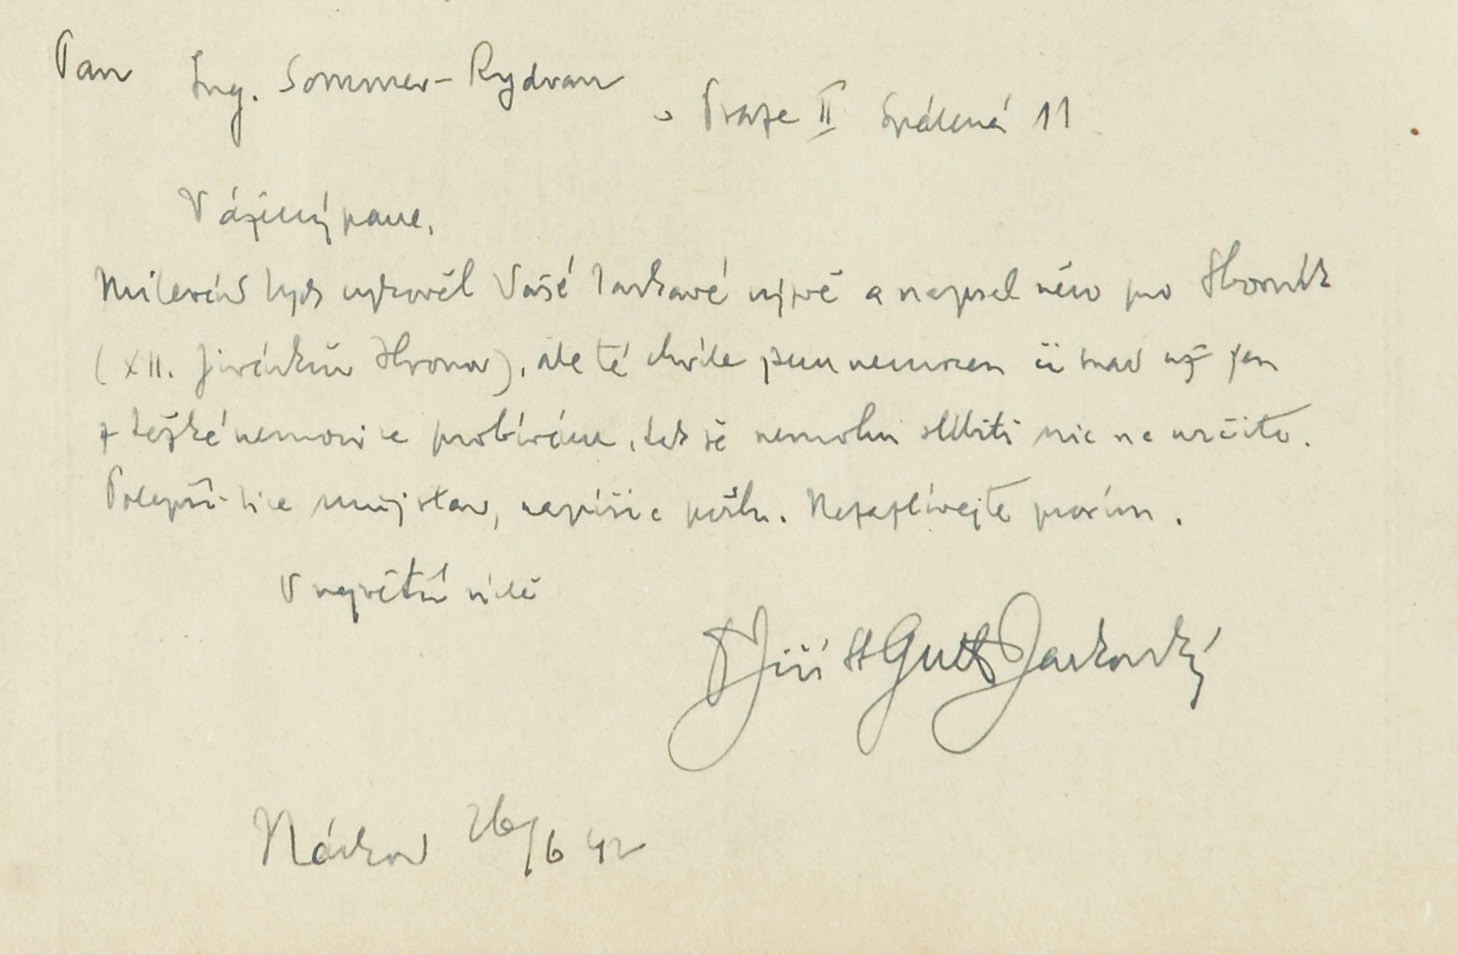 Pan Ing. Sommer-Rydvan
v Praze II Spálená 11
Vážený pane,
Milerád bych vyhověl Vaší laskavé výzvě a napsal něco pro Sborník
(XII. Jiráskův Hronov), ale té chvíle jsem nemocen či snad už jen
z těžké nemoci se probíráme, takže nemohu slíbiti nic na určito.
Polepší-li se můj stav, napíši a pošlu. Nezazlívejte prosím.
V největší úctě
Jiří St Guth Jarkovský
Náchod 26/6 42